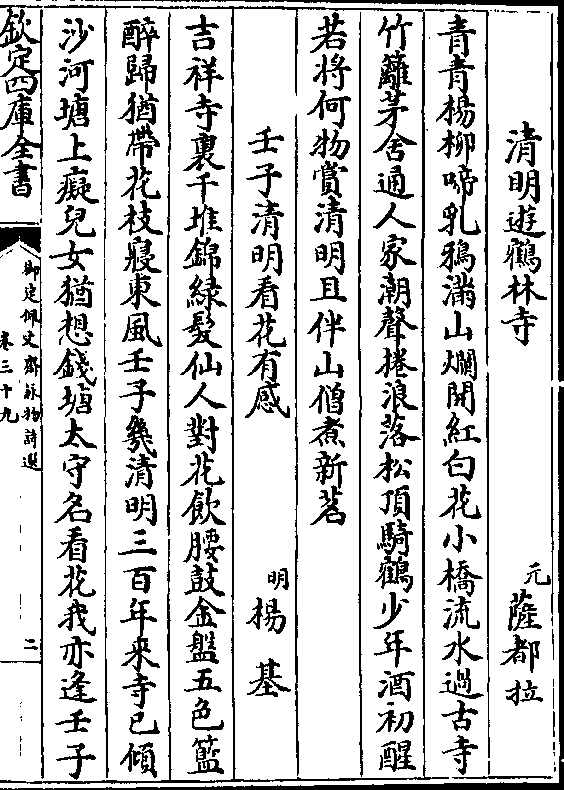 清明遊鶴林寺
元薩都拉
青青楊柳啼乳鴉滿山爛開紅白花小橋流水過古寺
竹籬茅舍通人家潮聲捲浪落松頂騎鶴少年酒初醒
若將何物賞清明且伴山僧煮新茗
壬子清明看花有感
明楊基
吉祥寺裏千堆錦緑髮仙人對花飲腰鼓金盤五色籃
醉歸猶帶花枝寢東風壬子幾清明三百年來寺已傾
沙河塘上癡兒女猶想錢塘太守名看花我亦逢壬子
欽定四庫全書
御定佩文齋詠物詩選
卷三十九
二